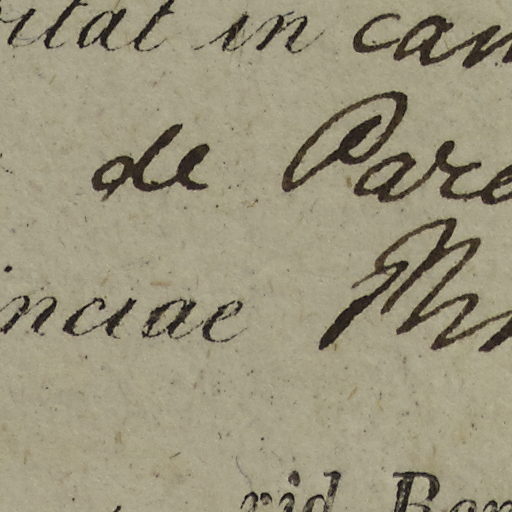 itat in can
de Pare
inciae
rid. Bon